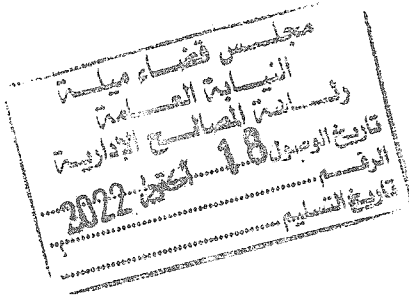 مجلس قضاء ميلة
النيابة العامة
رئاسة المصالح الإدارية
تاريخ الوصول 18 أكتوبر 2022
الرقم
تاريخ التسليم